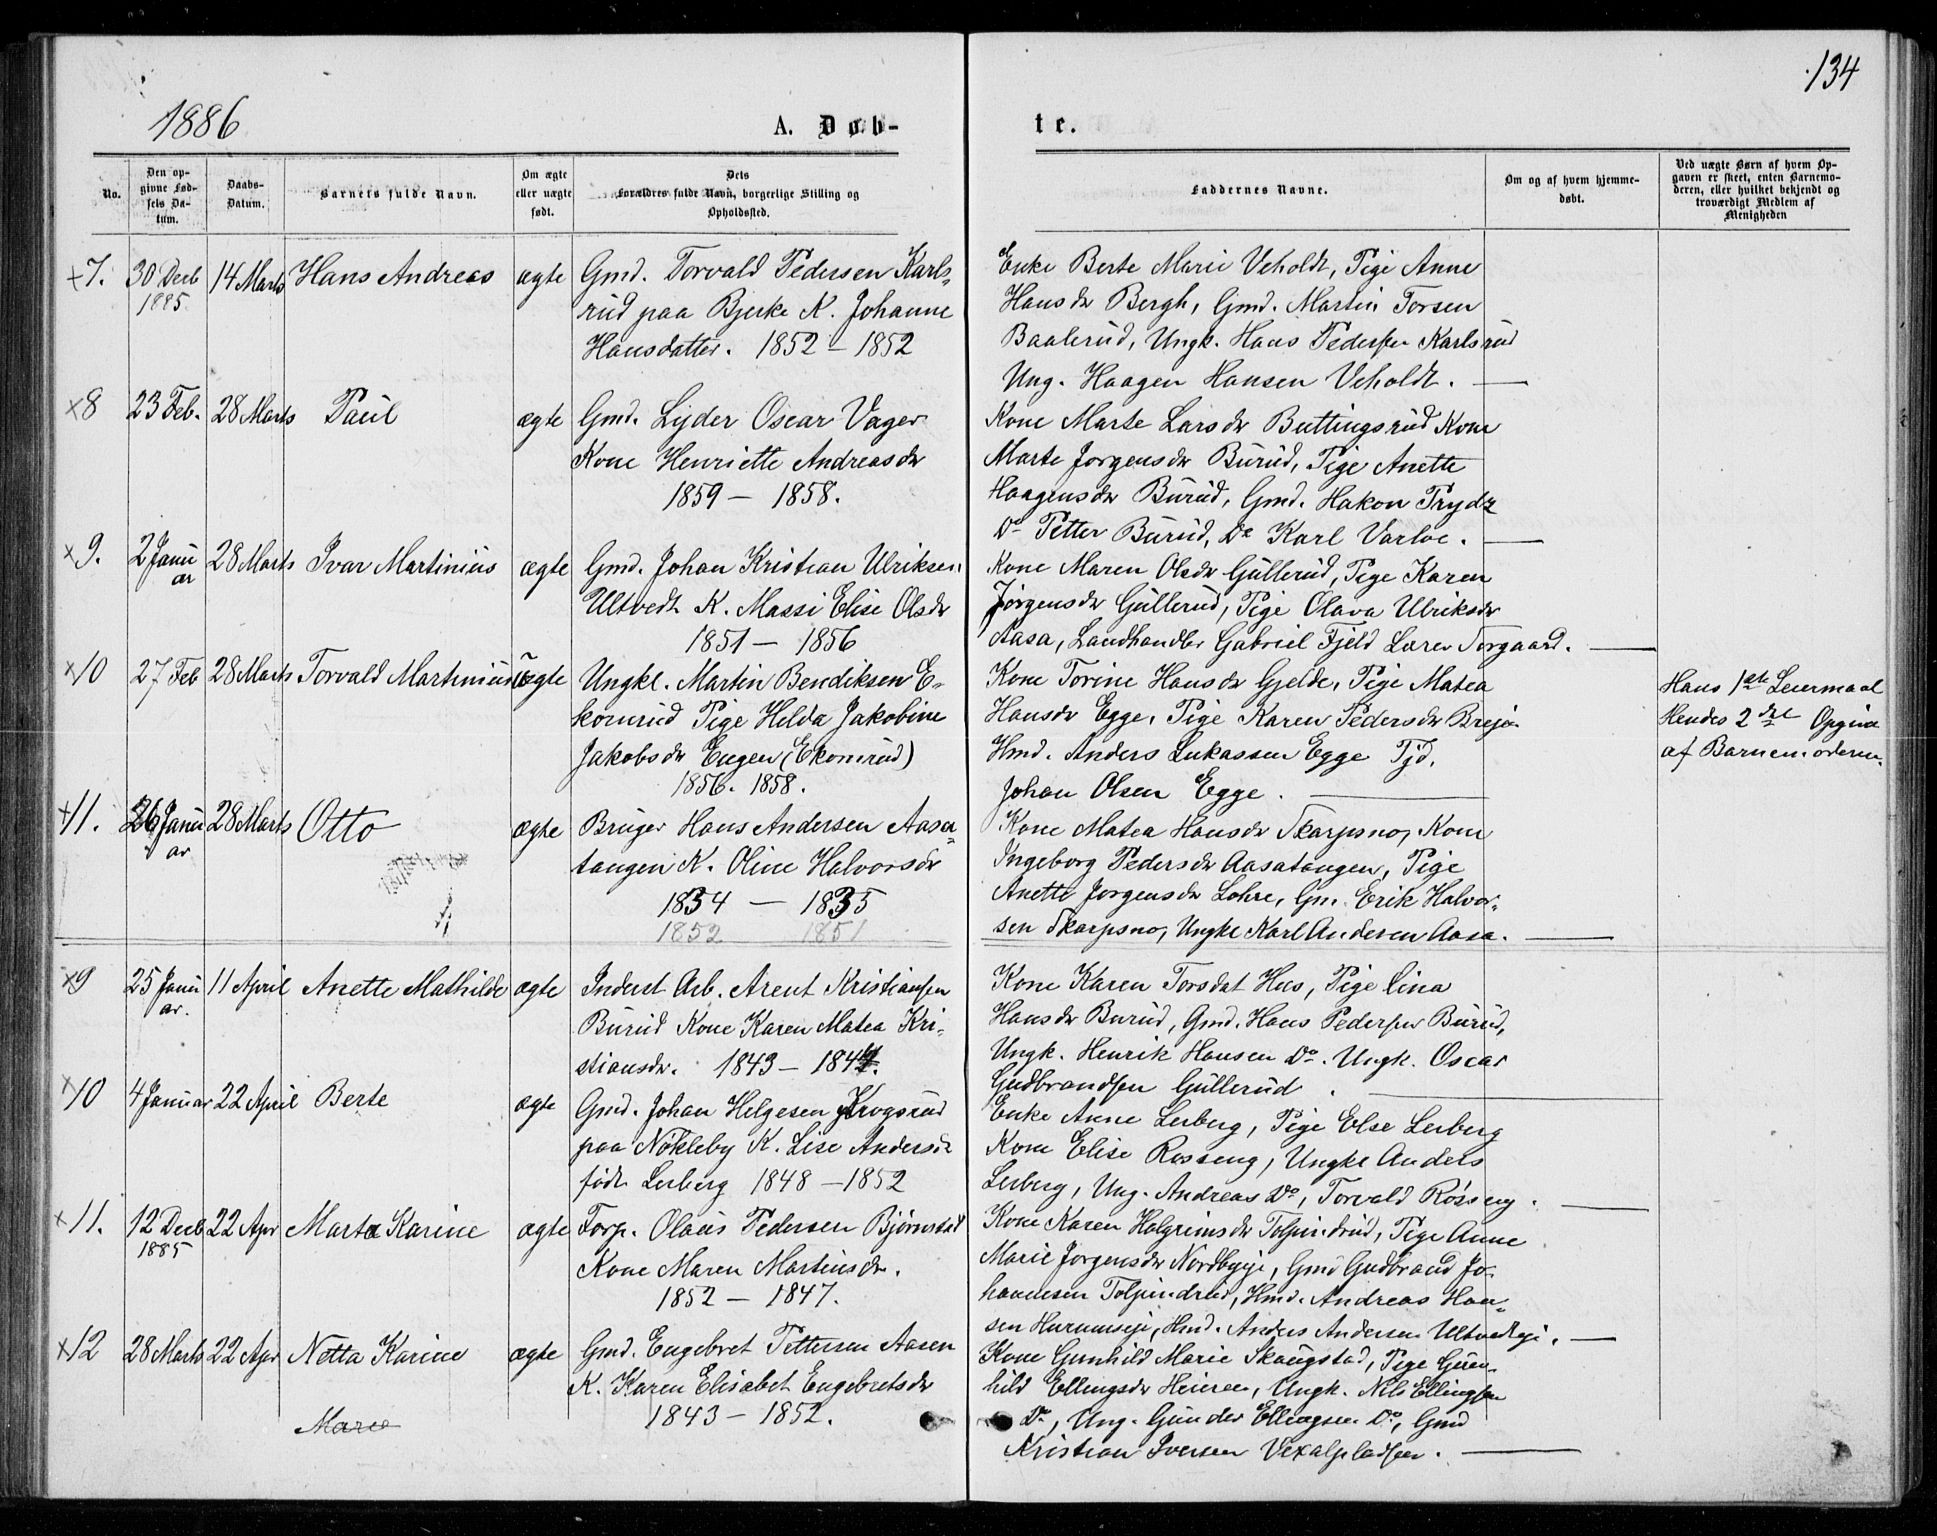 134
1886
A. Døb-
te.
No.
Den op-
givne Fød-
sels Da-
tum.
Daabs-
Datum.
Barnets fulde Navn.
Om ægte
eller uægte
født.
Dets
Forældres fulde Navn, borgerlige Stilling og
Opholdssted.
Faddernes Navne.
Om og af hvem hjemme-
døbt.
Ved uægte Børn af hvem Op-
gaven er skeet, enten Barnemo-
deren, eller hvilket bekjendt og
troværdigt Medlem af
Menigheden
x7. 30 Decb 14 Marts Hans Andreas ægte Gmd. Torvald Pedersen Karls-
1885
rud paa Bjerke K. Johanne
Hansdatter. 1852 – 1852
Enke Berte Marie Veholdt, Pige Anne
Hansdr Bergh, Gmd. Martin Torsen
Baalerud, Ungk. Hans Pedersen Karlsrud
Ung. Haagen Hansen Veholdt.
x8 23 Feb. 28 Marts Paul ægte Gmd. Lyder Oscar Vager
Kone Henriette Andreasdr
1859 – 1858.
Kone Marte Larsdr Buttingsrud Kone
Marte Jorgensdr Burud, Pige Anette
Haagensdr Burud, Gmd. Hakon Trydz
Do Petter Burud, Do Karl Varloe.
x9. 2 Janu 28 Marts Ivar Martinius ægte Gmd. Johan Kristian Ulriksen
ar
Ultvedt K. Massi Elise Olsdr
1851 – 1856
Kone Maren Olsdr Gullerud, Pige Karen
Jørgensdr Gullerud, Pige Olava Ulriksdr
Aasa, Landhandler Gabriel Fjeld Lærer Torgaard.
x10 27 Feb 28 Marts Torvald Martinius uægte Ungkl. Martin Bendiksen E-
komrud Pige Hilda Jakobine
Jakobsdr Eugen (Ekomrud)
1856. 1858.
Kone Torine Hansdr Gjelde, Pige Matea
Hansdr Egge, Pige Karen Pedersdr
Hmd. Anders Lukassen Egge Tjd.
Johan Olsen Egge.
Hans 1ste Leiermaal
Hendes 2det Opgive
af Barnemoderen.
x11. 26 Janu 28 Marts Otto ægte Bruger Hans Andersen Aasa-
ar
tangen K. Oline Halvorsdr
1834 – 1835
1852 1851
Kone Matea Hansdr Skarpsno, Kone
Ingeborg Pedersdr Aasatangen, Pige
Anette Jorgensdr Lohre, Gm. Erik Halvor-
sen Skarpsno, Ungke Karl Andersen Aasa.
x9 25 Janu 11 April Anette Mathilde ægte Inderst Arb. Arent Kristiansen
ar.
Burud Kone Karen Matea Kri-
stiansdr. 1843 – 1844.
Kone Karen Torsdat Hus, Pige Lina
Hansdr Burud, Gmd. Hans Pedersen Burud,
Ungk. Henrik Hansen Do. Ungk. Oscar
Gudbrandsen Gullerud.
x10 4 Januar 22 April Berte ægte Gmd. Johan Helgesen Krogsrud
paa Nøkleby K. Lise Andersdr
født Lerberg 1848 – 1852
Enke Anne Lerberg, Pige Else Lerberg
Kone Elise Røsseng, Ungke Anders
Lerberg, Ung. Andreas Do, Torvald Røsseng.
x11. 12 Decb 22 Apr Marta Karine ægte Forp. Olaus Pedersen Bjørnstad
1885
Kone Maren Martinsdr.
1852 – 1847.
Kone Karen Halgrimsdr Tolpindrud, Pige Anne
Marie Jorgensdr Nordbyeje, Gmd Gudbrand Jo-
hannesen Tolpindrud, Hmd. Andreas Han-
sen Hurumseje, Hmd. Anders Andersen Ultvedteje.
x12 28 Marts 22 Apr Netta Karine ægte Gmd. Engebret Pettersen Aasen
K. Karen Elisabet Engebretsdr
1843 – 1852.
Maren
Kone Gunhild Marie Skaugstad, Pige Gun-
hild Ellingsdr Heieren, Ungk. Nils Ellingsen
Do, Ung. Gunder Ellingsen Do, Gmd
Kristian Iversen Vexalpladsen.